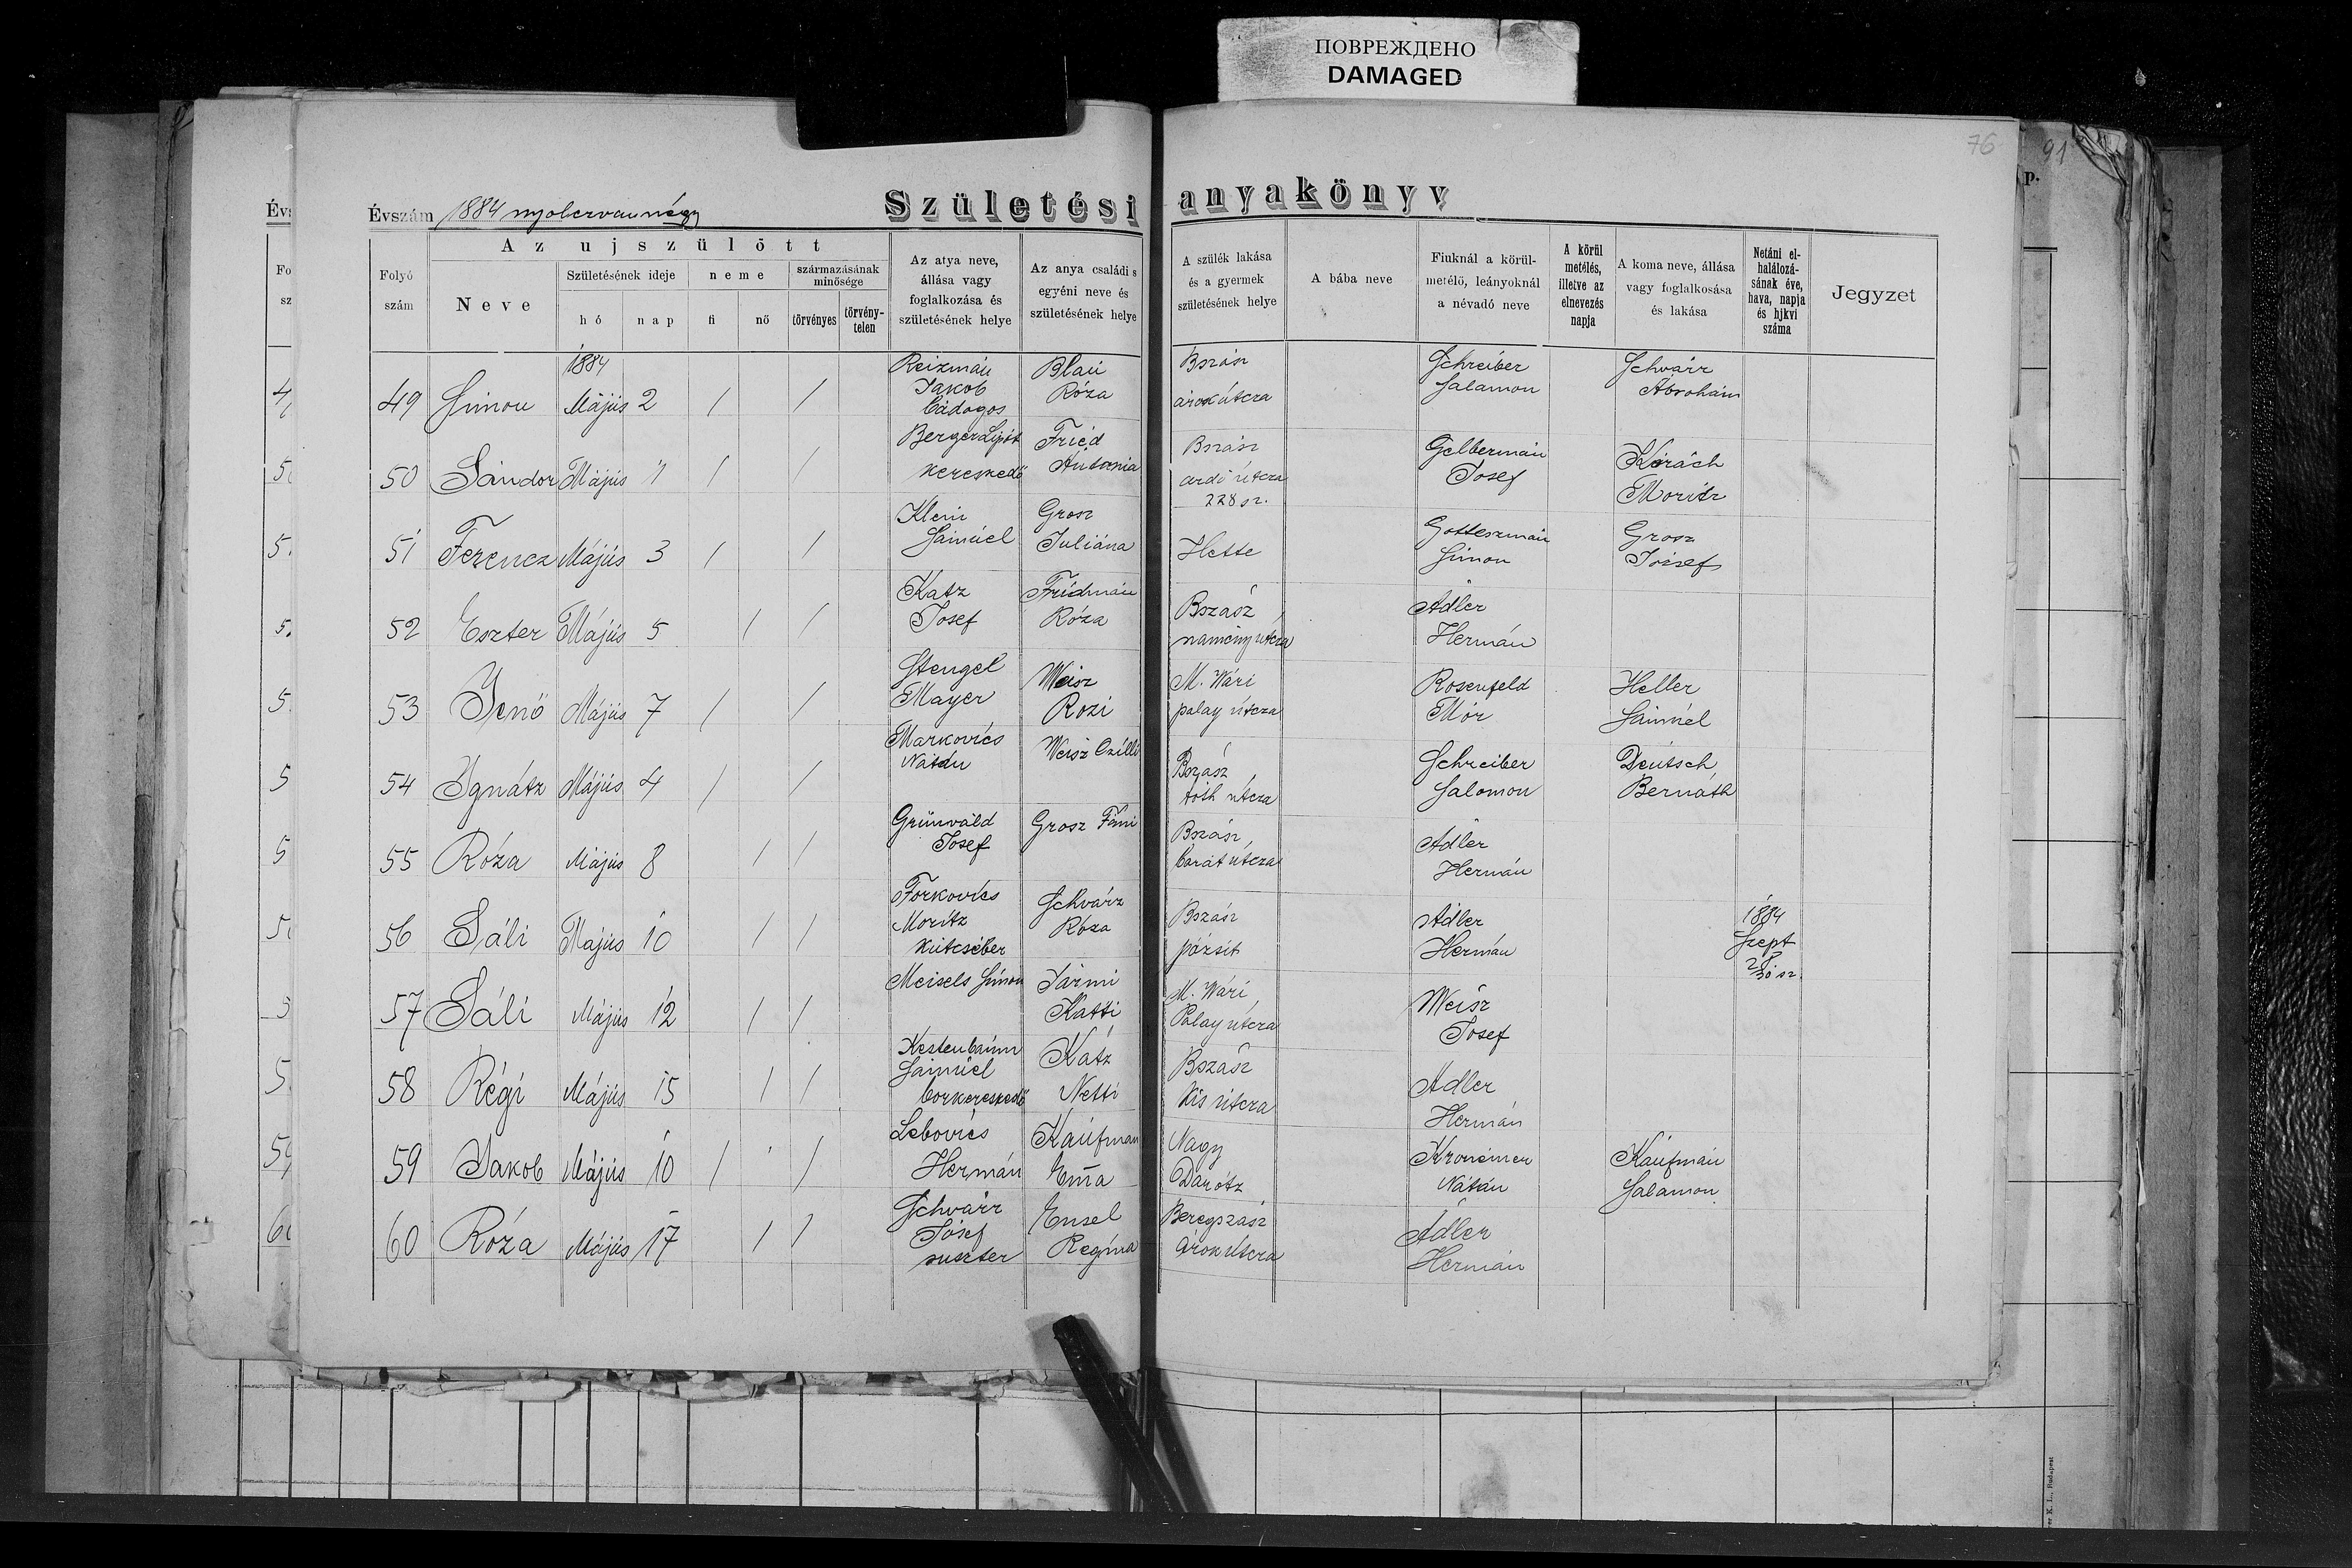 ПОВРЕЖДЕНО
DAMAGED
76
91
Évszám 1884 nyolczvannégy
Születési anyakönyv
Folyó szám
Az ujszülött
Neve
Születésének ideje
hó
nap
neme
fi
nő
származásának minősége
törvényes
törvény-telen
Az atya neve, állása vagy foglalkozása és születésének helye
Az anya családi s egyéni neve és születésének helye
A szülék lakása és a gyermek születésének helye
A bába neve
Fiuknál a körül-metélő, leányoknál a névadó neve
A körül metélés, illetve az elnevezés napja
A koma neve, állása vagy foglalkosása és lakása
Netáni el-halálozá-sának éve, hava, napja és hjkvi száma
Jegyzet
1884
49 Simon Május 2 / / Reizmán Jakob bádogos Blau Róza Bszász árok útcza Schreiber Salamon Schvarz Abrohám
50 Sándor Május 1 / / Berger Lipót kereskedő Fried Antonia Bszász ardó útcza 228 sz. Gelbermán Josef Korách Moritz
51 Ferencz Május 3 / / Klein Sámúel Grosz Juliána Hette Gotteszmán Simon Grosz József
52 Eszter Május 5 / / Katz Josef Fridmán Róza Bszász namény útcza Adler Hermán
53 Jenő Május 7 / / Stengel Mayer Weisz Rozi M. Wári palay útcza Rosenfeld Mór Heller Sámúel
54 Ignátz Május 4 / / Markovics Nátán Weisz Czilli Bszász tóth útcza Schreiber Salomon Deutsch Bernáth
55 Róza Május 8 / / Grünvald Josef Grosz Fáni Bszász, barát útcza Adler Hermán
56 Sáli Május 10 / / Forkovics Moritz Schvárz Róza Bszász pázsit Adler Hermán 1884 Szept
57 Sáli Május 12 / / Meisels Simon Jármi Katti M. Wári, Palay útcza Weisz Josef
58 Régi Május 15 / / Kestenbaum Sámúel borkereskedő Kátz Netti Bszász Kis útcza Adler Hermán
59 Jakob Május 10 / / Lebovics Hermán Kaufman Ema Nagy Darótz Nátán Kaufmán Salamon
60 Róza Május 17 / / Schvarz Jósef suszter Ensel Regina Beregszász árok útcza Adler Hermán